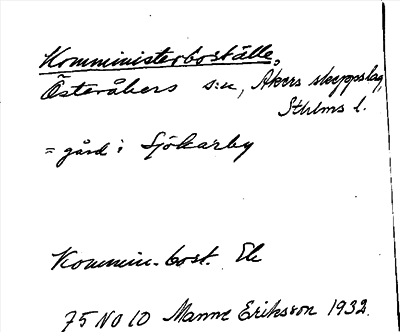 Komministerboställe.
Österåkers s:n, Åkers skeppslag,
Sthlms l.
= gård i Sjökarby
Kommin.-bost. Ek
75 NO 10 Manne Eriksson 1932.